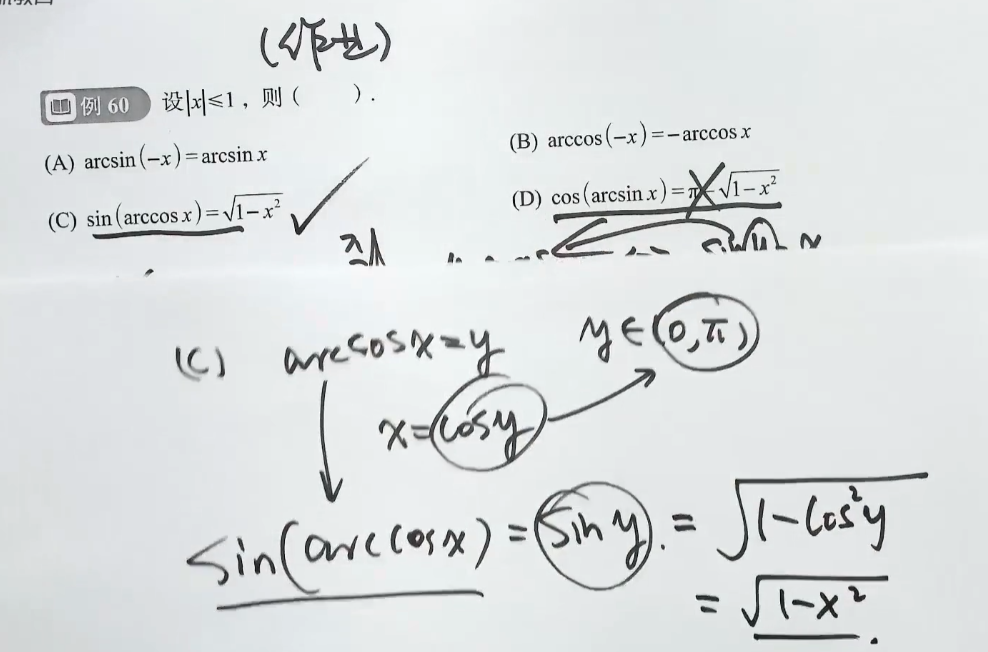 例 60 设|x|≤1，则（ ）.
(A) arcsin(−x)=arcsin x
(B) arccos(−x)=−arccos x
(C) sin(arccos x)=√1−x²
(D) cos(arcsin x)=π−√1−x²
(C) arccosx=y y∈(0,π)
x=cosy
sin(arccosx)=siny.=√1−cos²y
=√1−x².